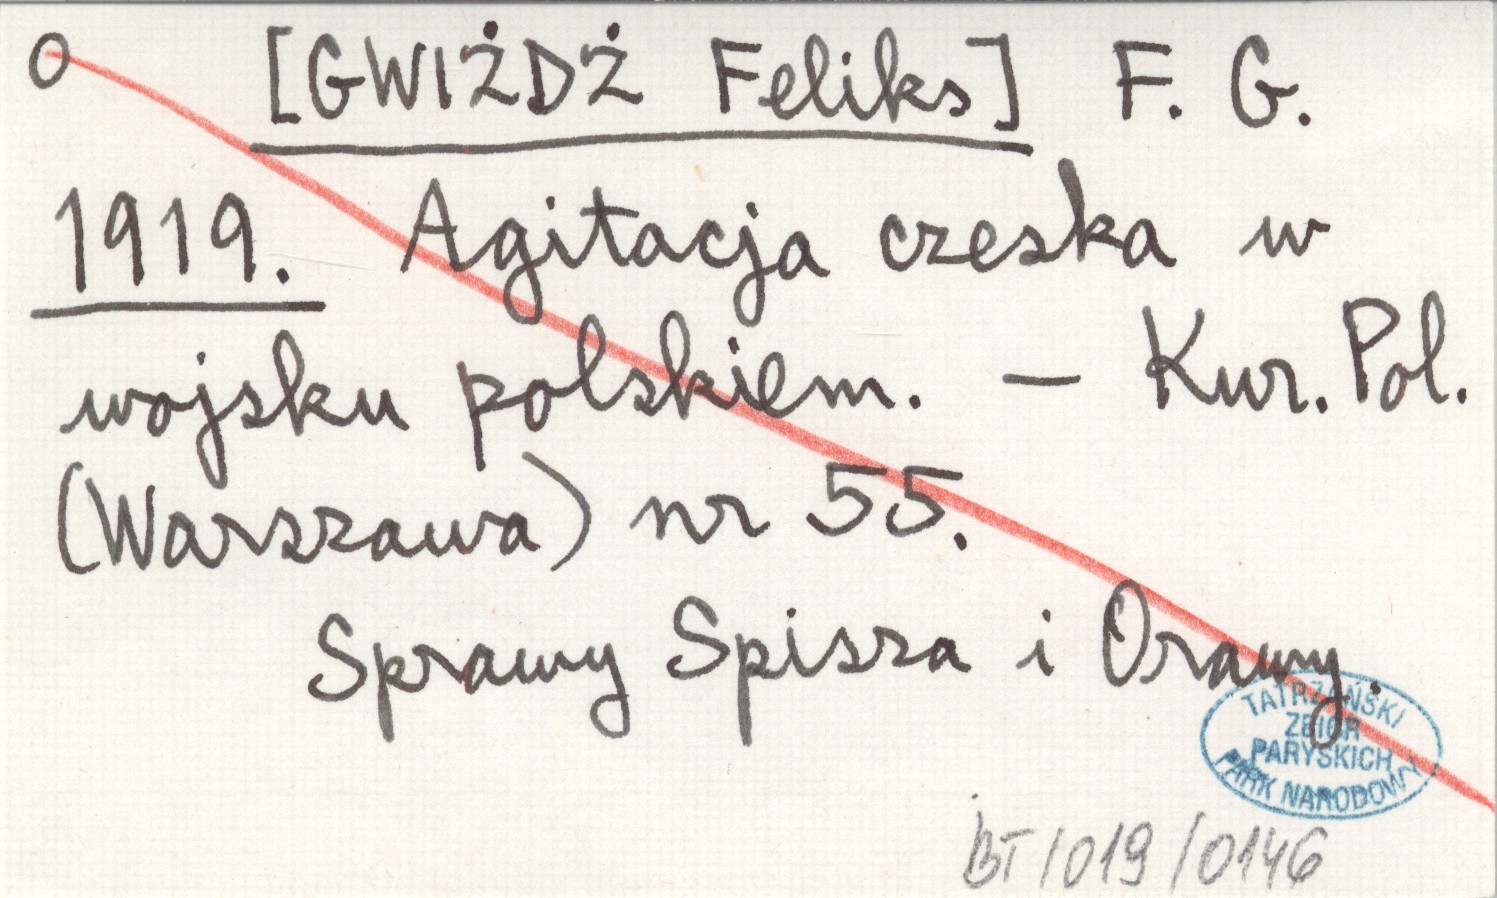 O [GWIŻDŻ Feliks] F. G.
1919. Agitacja czeska w
wojsku polskiem. — Kur. Pol.
(Warszawa) nr 55.
Sprawy Spisza i Orawy.
TATRZAŃSKI
ZBIÓR
PARYSKICH
PARK NARODOWY
BT/019/0146